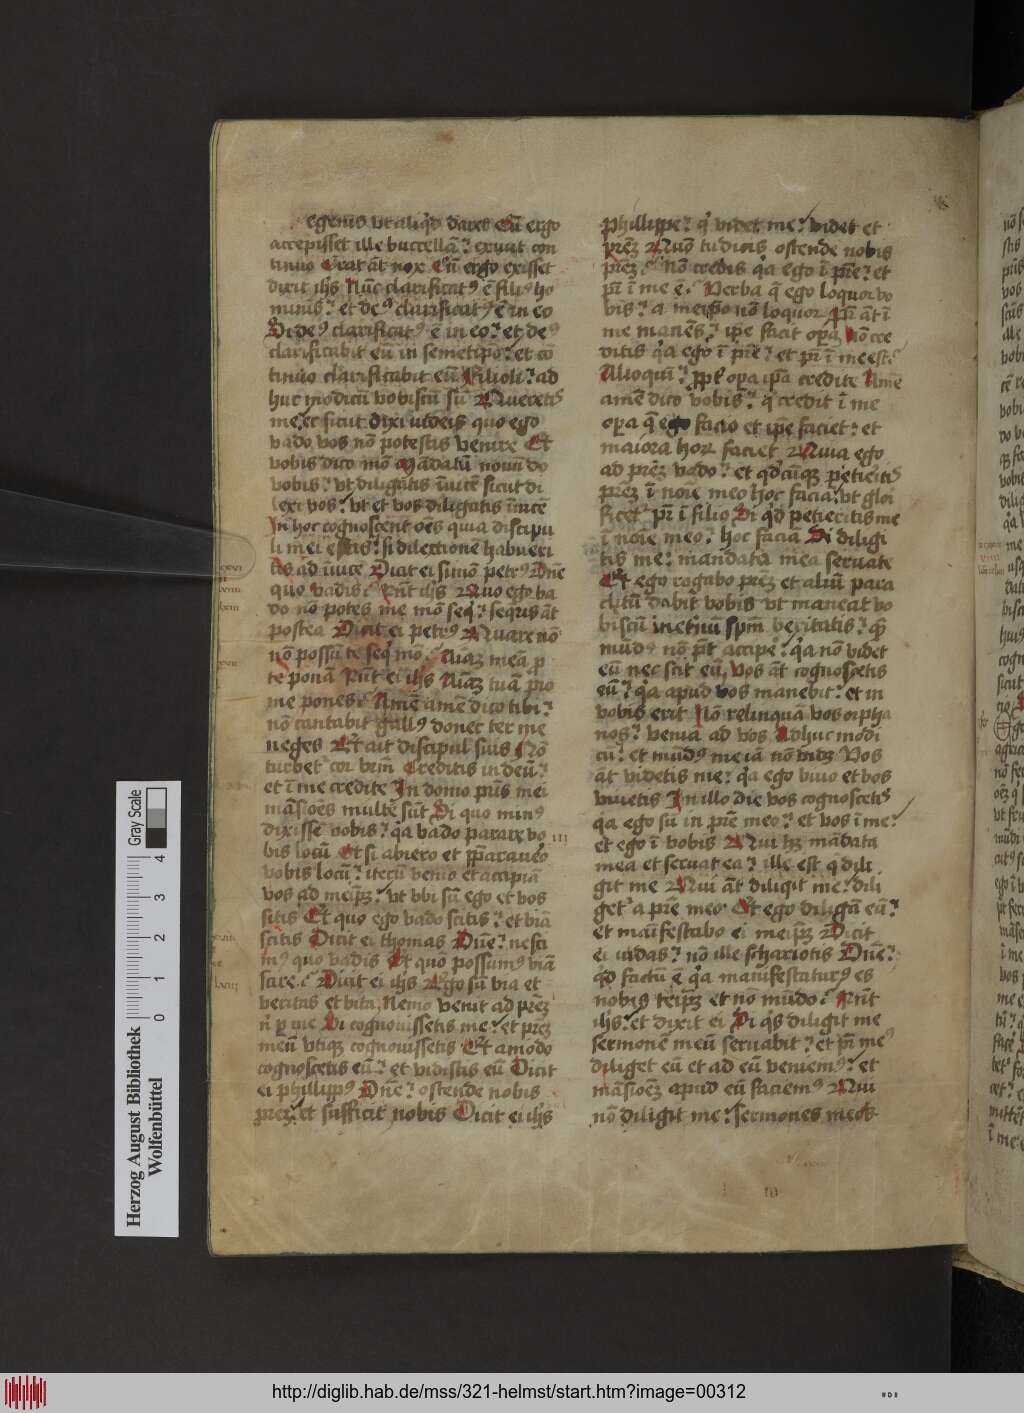 egenis vt aliq̇d daret Cū ergo
accepisset ille buccellā? exiuit con
tinuo Erat āt nox Cū ergo exisset
dixit ihs Nūc clarificatꝰ ē filiꝰ ho
minis? et deꝰ clarificatꝰ ē in eo
Si deꝰ clarificatꝰ ē in eo? et deꝰ
clarificabit eū in semetip̄o? et cō
tinuo clarificabit eū Filioli? ad
huc modicū vobiscū sū Queretis
me et sicut dixi iudeis quo ego
vado vos nō potestis venire Et
vobis dico mō Mādatū nouū do
vobis? vt diligatis īuicē sicut di
lexi vos? vt et vos diligatis īuicē
In hoc cognoscent oēs quia discipu
li mei estis? si dilectionē habueri
tis ad īuicē Dicit ei simō petrꝰ Dn̄e
quo vadis? Rn̄t ihs Quo ego va
do nō potes me mō seq̇? seqris āt
postea Dicit ei petrꝰ Quare nō
nō possū te seq̇ mō? Aīaꝫ meā ꝓ
te ponā Rn̄t ei ihs Aīaꝫ tuā ꝓ
me pones? Amē amē dico tibi?
nō cantabit gallꝰ donec ter me
neges Et ait discipul' suis Nō
turbet' cor vr̄m Creditis in deū?
et ī me credite In domo pr̄is mei
māsiōes multe sūt Si quo minꝰ
dixissē vobis? q̇a vado parare vo
bis locū Et si abiero et p̄parauero
vobis locū? iterū venio et accipiā
vos ad meip̄ꝫ? vt vbi sū ego et vos
sitis Et quo ego vado scitis? et viā
scitis Dicit ei thomas Dn̄e? nesci
mꝰ quo vadis Et quo possumꝰ viā
scire? Dicit ei ihs Ego sū via et
veritas et vita, Nemo venit ad pr̄eꝫ
n̄ ꝑ me Si cognouissetis me? et pr̄eꝫ
meū vtiqꝫ cognouissetis Et amodo
cognoscetis eū? et vidistis eū Dicit
ei phillippꝰ Dn̄e? ostende nobis
pr̄eꝫ? et sufficit nobis Dicit ei ihs
phillippe? q̇ videt me? videt et
pr̄eꝫ Quō tu dicis ostende nobis
pr̄eꝫ? Nō credis q̇a ego ī pr̄e? et
pr̄ ī me ē? Verba q̄ ego loquor vo
bis? a meip̄o nō loquor Pr̄ āt ī
me manēs? ip̄e facit oꝑa Nō cre
ditis q̇a ego ī pr̄e? et pr̄ ī me est?
Alioquī? ꝓpt' opa ip̄a credite Amē
amē dico vobis? q̇ credit ī me
opa q̄ ego facio et ip̄e faciet? et
maiora hoꝝ faciet Quia ego
ad pr̄eꝫ vado? et qd̄cūqꝫ petieritis
pr̄eꝫ ī noīe meo hoc faciā? vt glori
ficet' pr̄ ī filio Si q̇d petieritis me
ī noīe meo? hoc faciā Si diligi
tis me? mandata mea seruate
Et ego rogabo pr̄eꝫ et aliū para
clitū dabit vobis vt maneat vo
biscū ineternū spm̄ veritatis? q̄
mūdꝰ nō pōt accipe? q̇a nō videt
eū nec scit eū, Vos āt cognoscetis
eū? q̇a apud vos manebit? et in
vobis erit Nō relinquā vos orpha
nos? veniā ad vos Adhuc modi
cū? et mūdꝰ me iā nō videt Vos
āt videtis me? q̇a ego viuo et vos
viuetis In illo die vos cognoscetis
q̇a ego sū in pr̄e meo? et vos ī me?
et ego ī vobis Qui hꝫ mādata
mea et seruat ea? ille est q̇ dili
git me Qui āt diligit me? dili
get' a pr̄e meo Et ego diligā eū?
et māifestabo ei meip̄ꝫ Dicit
ei iudas? nō ille schariotis Dn̄e?
q̇d factū ē q̇a manifestaturꝰ es
nobis teip̄ꝫ et nō mūdo? Rn̄t
ihs? et dixit ei Si q̇s diligit me
sermonē meū seruabit? et pr̄ meꝰ
diliget eū et ad eū veniemꝰ? et
māsioēꝫ apud eū faciemꝰ Qui
nō diligit me? sermones meos
Herzog August Bibliothek
Wolfenbüttel
Gray Scale
0 1 2 3 4
http://diglib.hab.de/mss/321-helmst/start.htm?image=00312